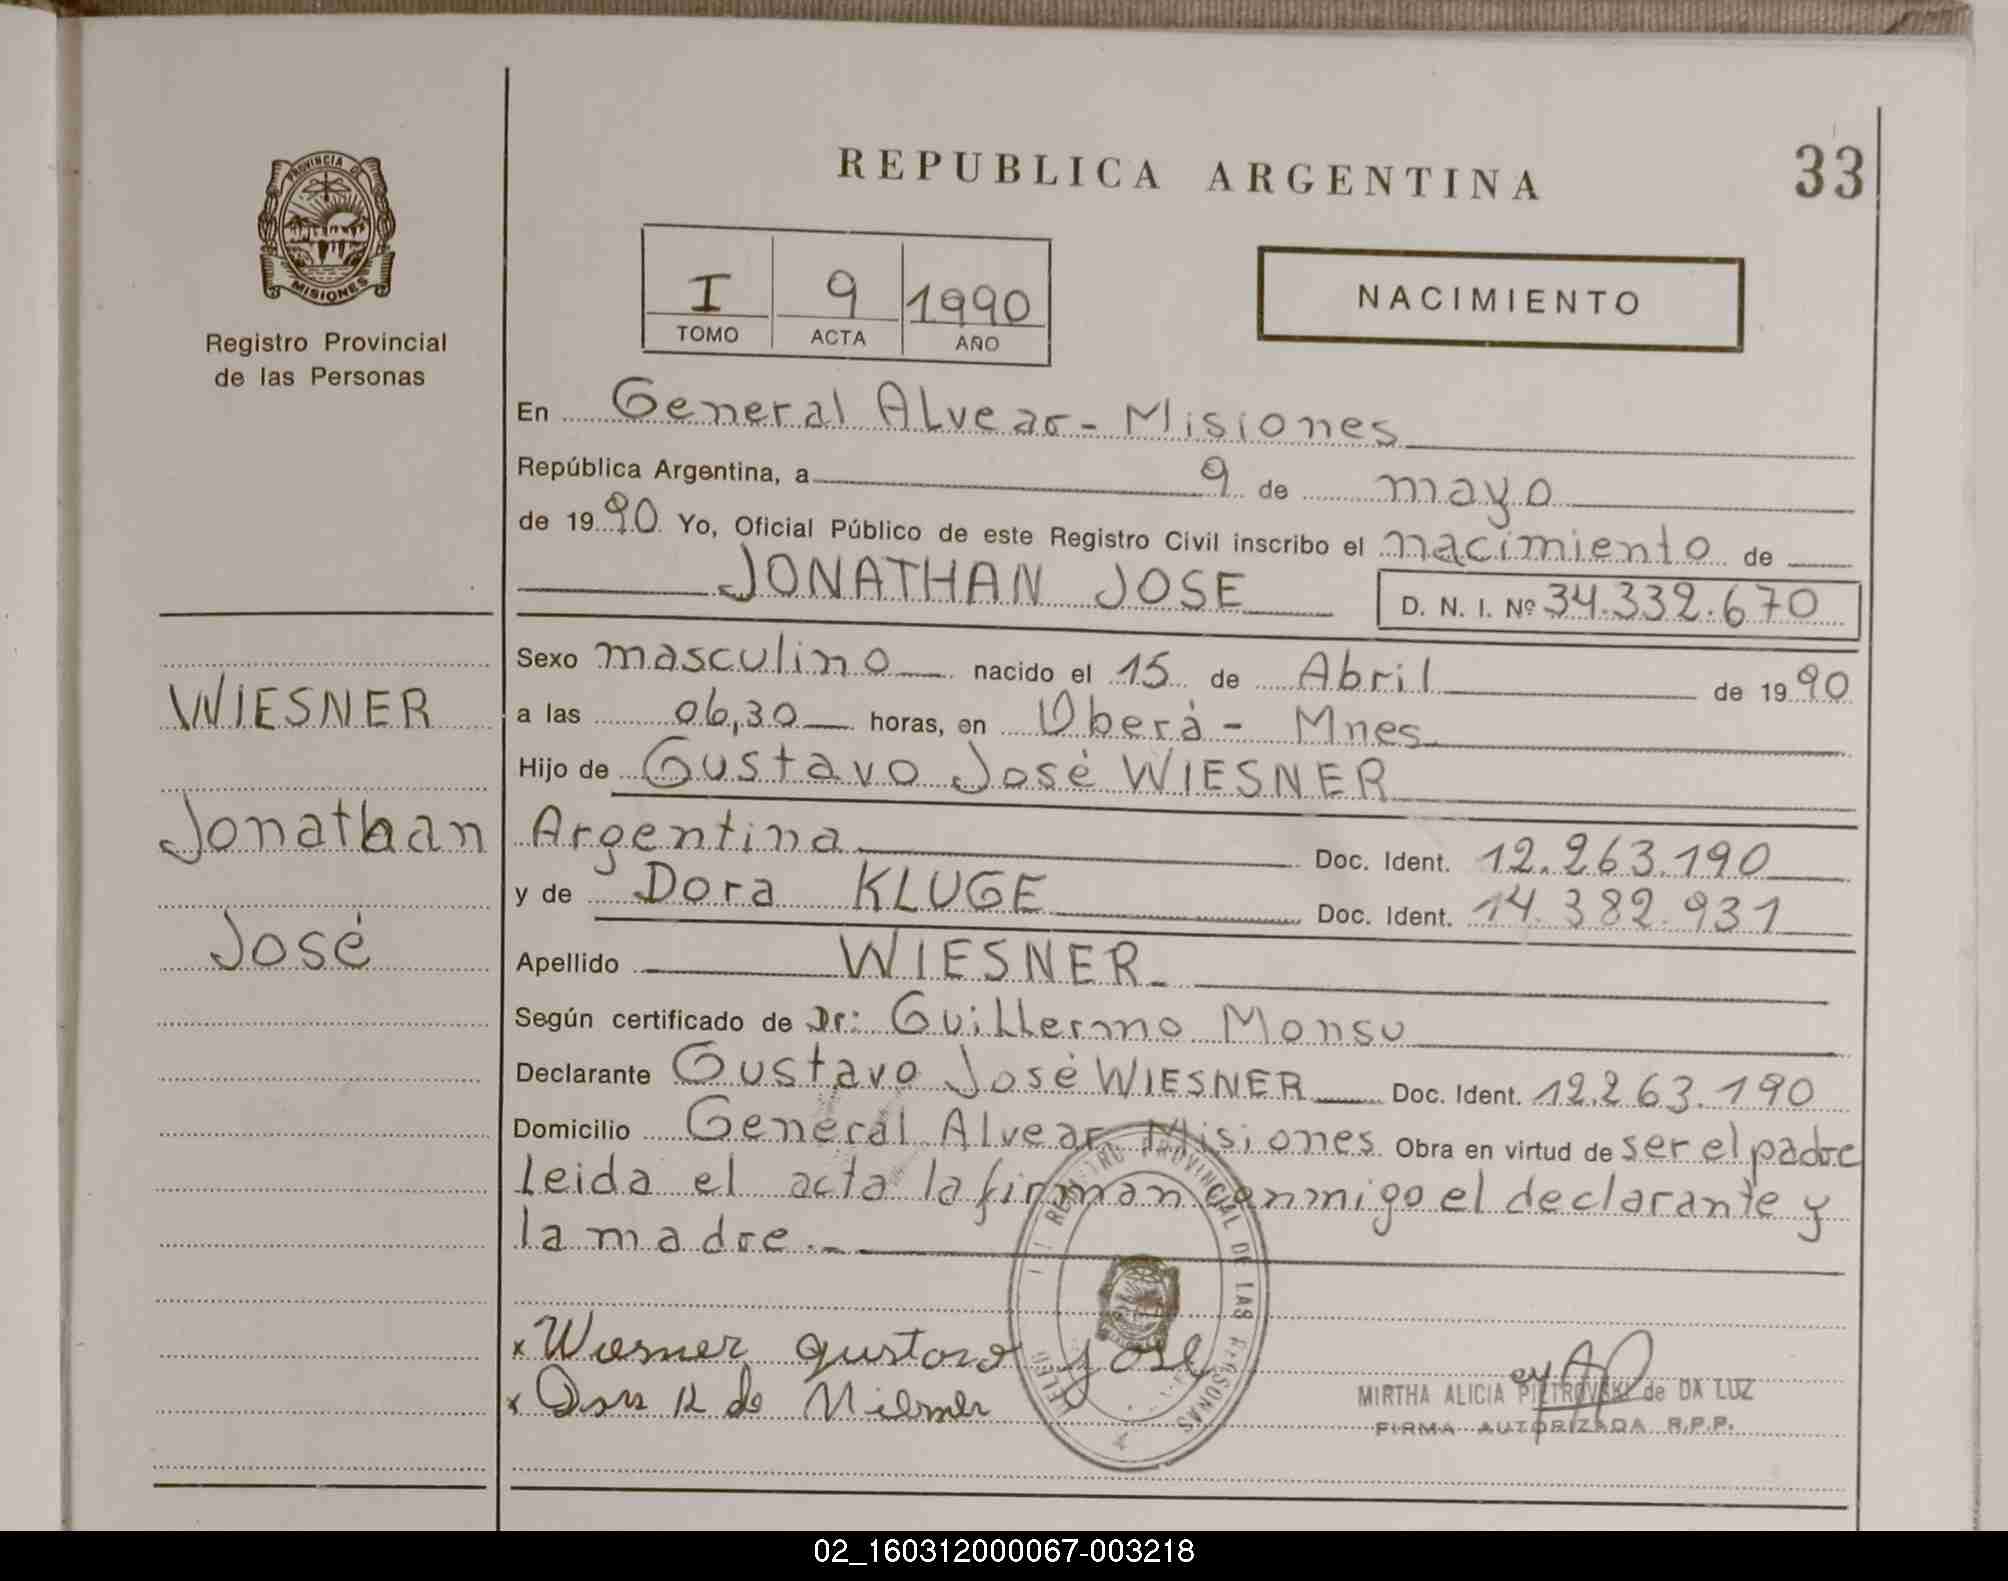 REPUBLICA ARGENTINA
33
PROVINCIA DE
MISIONES
Registro Provincial
de las Personas
I 9 1990
TOMO ACTA AÑO
NACIMIENTO
En General Alvear - Misiones
República Argentina, a 9 de mayo
de 1990 Yo, Oficial Público de este Registro Civil inscribo el nacimiento de
JONATHAN JOSE D. N. I. Nº 34.332.670
Sexo masculino nacido el 15 de Abril de 1990
WIESNER
a las 06,30 horas, en Oberá - Mnes
Hijo de Gustavo José WIESNER
Jonathan
Argentina Doc. Ident. 12.263.190
y de Dora KLUGE Doc. Ident. 14.382.931
José
Apellido WIESNER
Según certificado de Dr: Guillermo Monsu
Declarante Gustavo José WIESNER Doc. Ident. 12.263.190
Domicilio General Alvear Misiones Obra en virtud de ser el padre
leida el acta la firman conmigo el declarante y
la madre.-
REGISTRO PROVINCIAL DE LAS PERSONAS
x Wiesner gustavo jose
x Dora K de Wiesner
MIRTHA ALICIA PIETROVSKI de DA LUZ
FIRMA AUTORIZADA R.P.P.
02_160312000067-003218